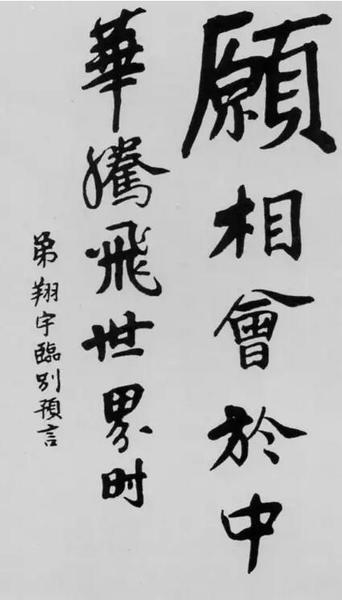 願相會於中
華騰飛世界时
弟翔宇臨别預言